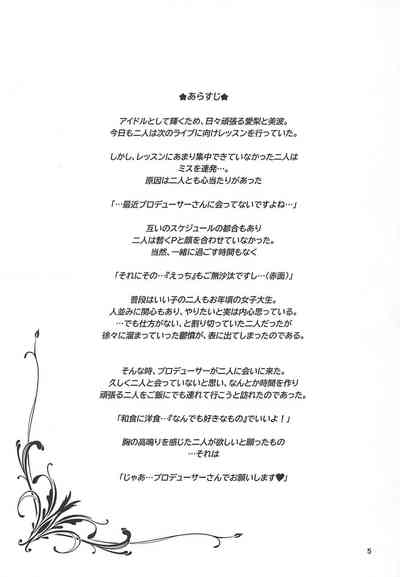 ★あらすじ★
アイドルとして輝くため、日々頑張る愛梨と美波。
今日も二人は次のライブに向けレッスンを行っていた。
しかし、レッスンにあまり集中できていなかった二人は
ミスを連発…。
原因は二人とも心当たりがあった
「…最近プロデューサーさんに会ってないですよね…」
互いのスケジュールの都合もあり
二人は暫くPと顔を合わせていなかった。
当然、一緒に過ごす時間もなく
「それにその…『えっち』もご無沙汰ですし…(赤面)」
普段はいい子の二人もお年頃の女子大生。
人並みに関心もあり、やりたいと実は内心思っている。
…でも仕方がない、と割り切っていた二人だったが
徐々に溜まっていった鬱憤が、表に出てしまったのである。
そんな時、プロデューサーが二人に会いに来た。
久しく二人と会っていないと思い、なんとか時間を作り
頑張る二人をご飯にでも連れて行こうと訪れたのであった。
「和食に洋食…『なんでも好きなもの』でいいよ！」
胸の高鳴りを感じた二人が欲しいと願ったもの
…それは
「じゃあ…プロデューサーさんでお願いします♥」
5